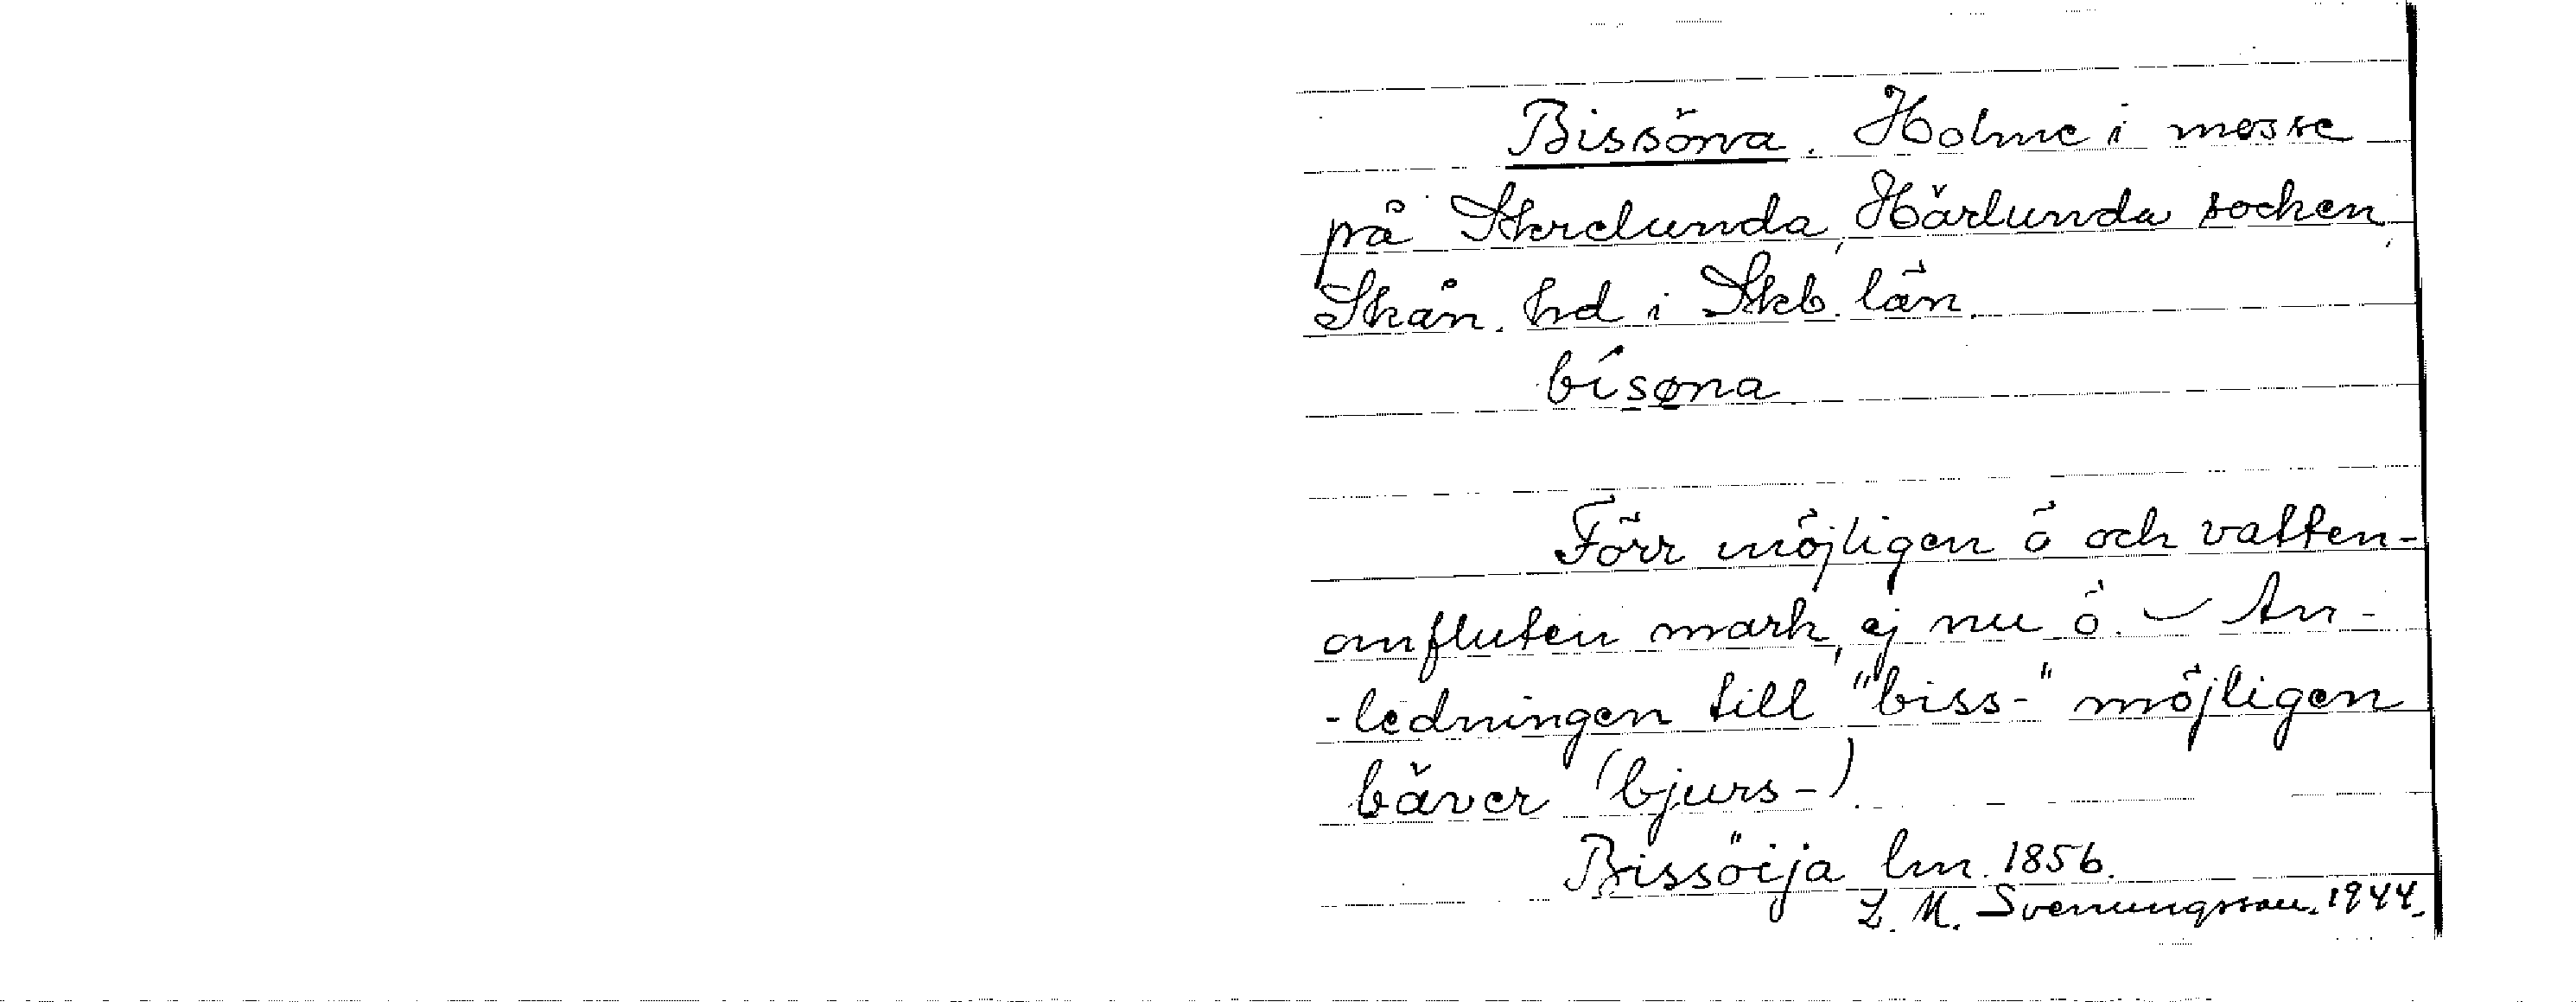 Bissöna. Holme i mosse
på Skrelunda, Härlunda socken,
Skån. hd i Skb. län.
bísøna
Förr möjligen ö och vatten-
omfluten mark, ej nu ö. – An-
-ledningen till "biss-" möjligen
bäver (bjurs-).
Bissöija lm. 1856.
L. M. Svenungsson. 1944.